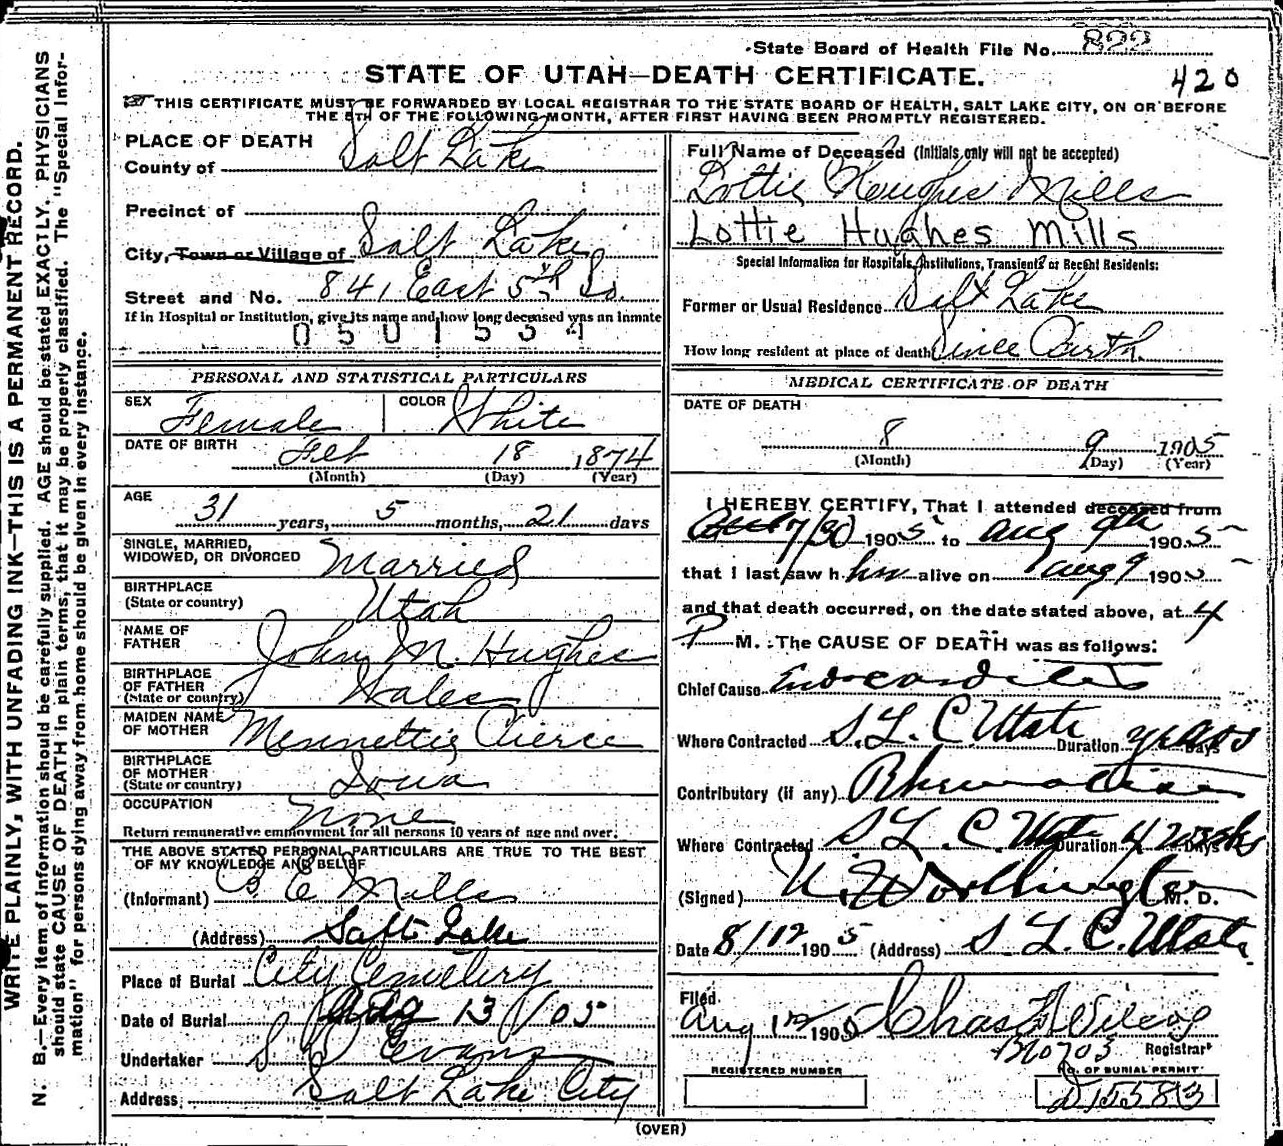 State Board of Health File No. 822
STATE OF UTAH—DEATH CERTIFICATE.
420
THIS CERTIFICATE MUST BE FORWARDED BY LOCAL REGISTRAR TO THE STATE BOARD OF HEALTH, SALT LAKE CITY, ON OR BEFORE
THE 5TH OF THE FOLLOWING MONTH, AFTER FIRST HAVING BEEN PROMPTLY REGISTERED.
WRITE PLAINLY, WITH UNFADING INK—THIS IS A PERMANENT RECORD.
N. B.—Every item of information should be carefully supplied. AGE should be stated EXACTLY. PHYSICIANS
should state CAUSE OF DEATH in plain terms, that it may be properly classified. The "Special Infor-
mation" for persons dying away from home should be given in every instance.
PLACE OF DEATH
County of Salt Lake
Precinct of
City, Town or Village of Salt Lake
Street and No. 841 East 5th So.
If in Hospital or Institution, give its name and how long deceased was an inmate
0501534
PERSONAL AND STATISTICAL PARTICULARS
SEX Female COLOR White
DATE OF BIRTH Feb 18 1874
(Month) (Day) (Year)
AGE
31 years, 5 months, 21 days
SINGLE, MARRIED,
WIDOWED, OR DIVORCED Married
BIRTHPLACE
(State or country) Utah
NAME OF
FATHER John M. Hughes
BIRTHPLACE
OF FATHER
(State or country) Wales
MAIDEN NAME
OF MOTHER Mennettie Pierce
BIRTHPLACE
OF MOTHER
(State or country) Iowa
OCCUPATION None
Return remunerative employment for all persons 10 years of age and over.
THE ABOVE STATED PERSONAL PARTICULARS ARE TRUE TO THE BEST
OF MY KNOWLEDGE AND BELIEF
(Informant) B E Mills
(Address) Salt Lake
Place of Burial City Cemetery
Date of Burial Aug 13 / 05
Undertaker S D Evans
Address Salt Lake City
Full Name of Deceased (Initials only will not be accepted)
Lottie Hughes Mills
Lottie Hughes Mills
Special Information for Hospitals, Institutions, Transients or Recent Residents:
Former or Usual Residence Salt Lake
How long resident at place of death Since Birth.
MEDICAL CERTIFICATE OF DEATH
DATE OF DEATH
8 9 1905
(Month) (Day) (Year)
I HEREBY CERTIFY, That I attended deceased from
7/30 1905 to Aug 9th 1905
that I last saw her alive on Aug 9 1905
and that death occurred, on the date stated above, at 4
P M. The CAUSE OF DEATH was as follows:
Chief Cause Endocarditis
Where Contracted S. L. C. Utah Duration years Days
Contributory (if any) Rheumatism
Where Contracted S L. C. Utah Duration 4 weeks Days
(Signed) U. Worthington M. D.
Date 8/12 1905 (Address) S L. C. Utah.
Filed
Aug 12 1905 Chas Wilcox
Registrar
REGISTERED NUMBER
No. OF BURIAL PERMIT
D15583
(OVER)